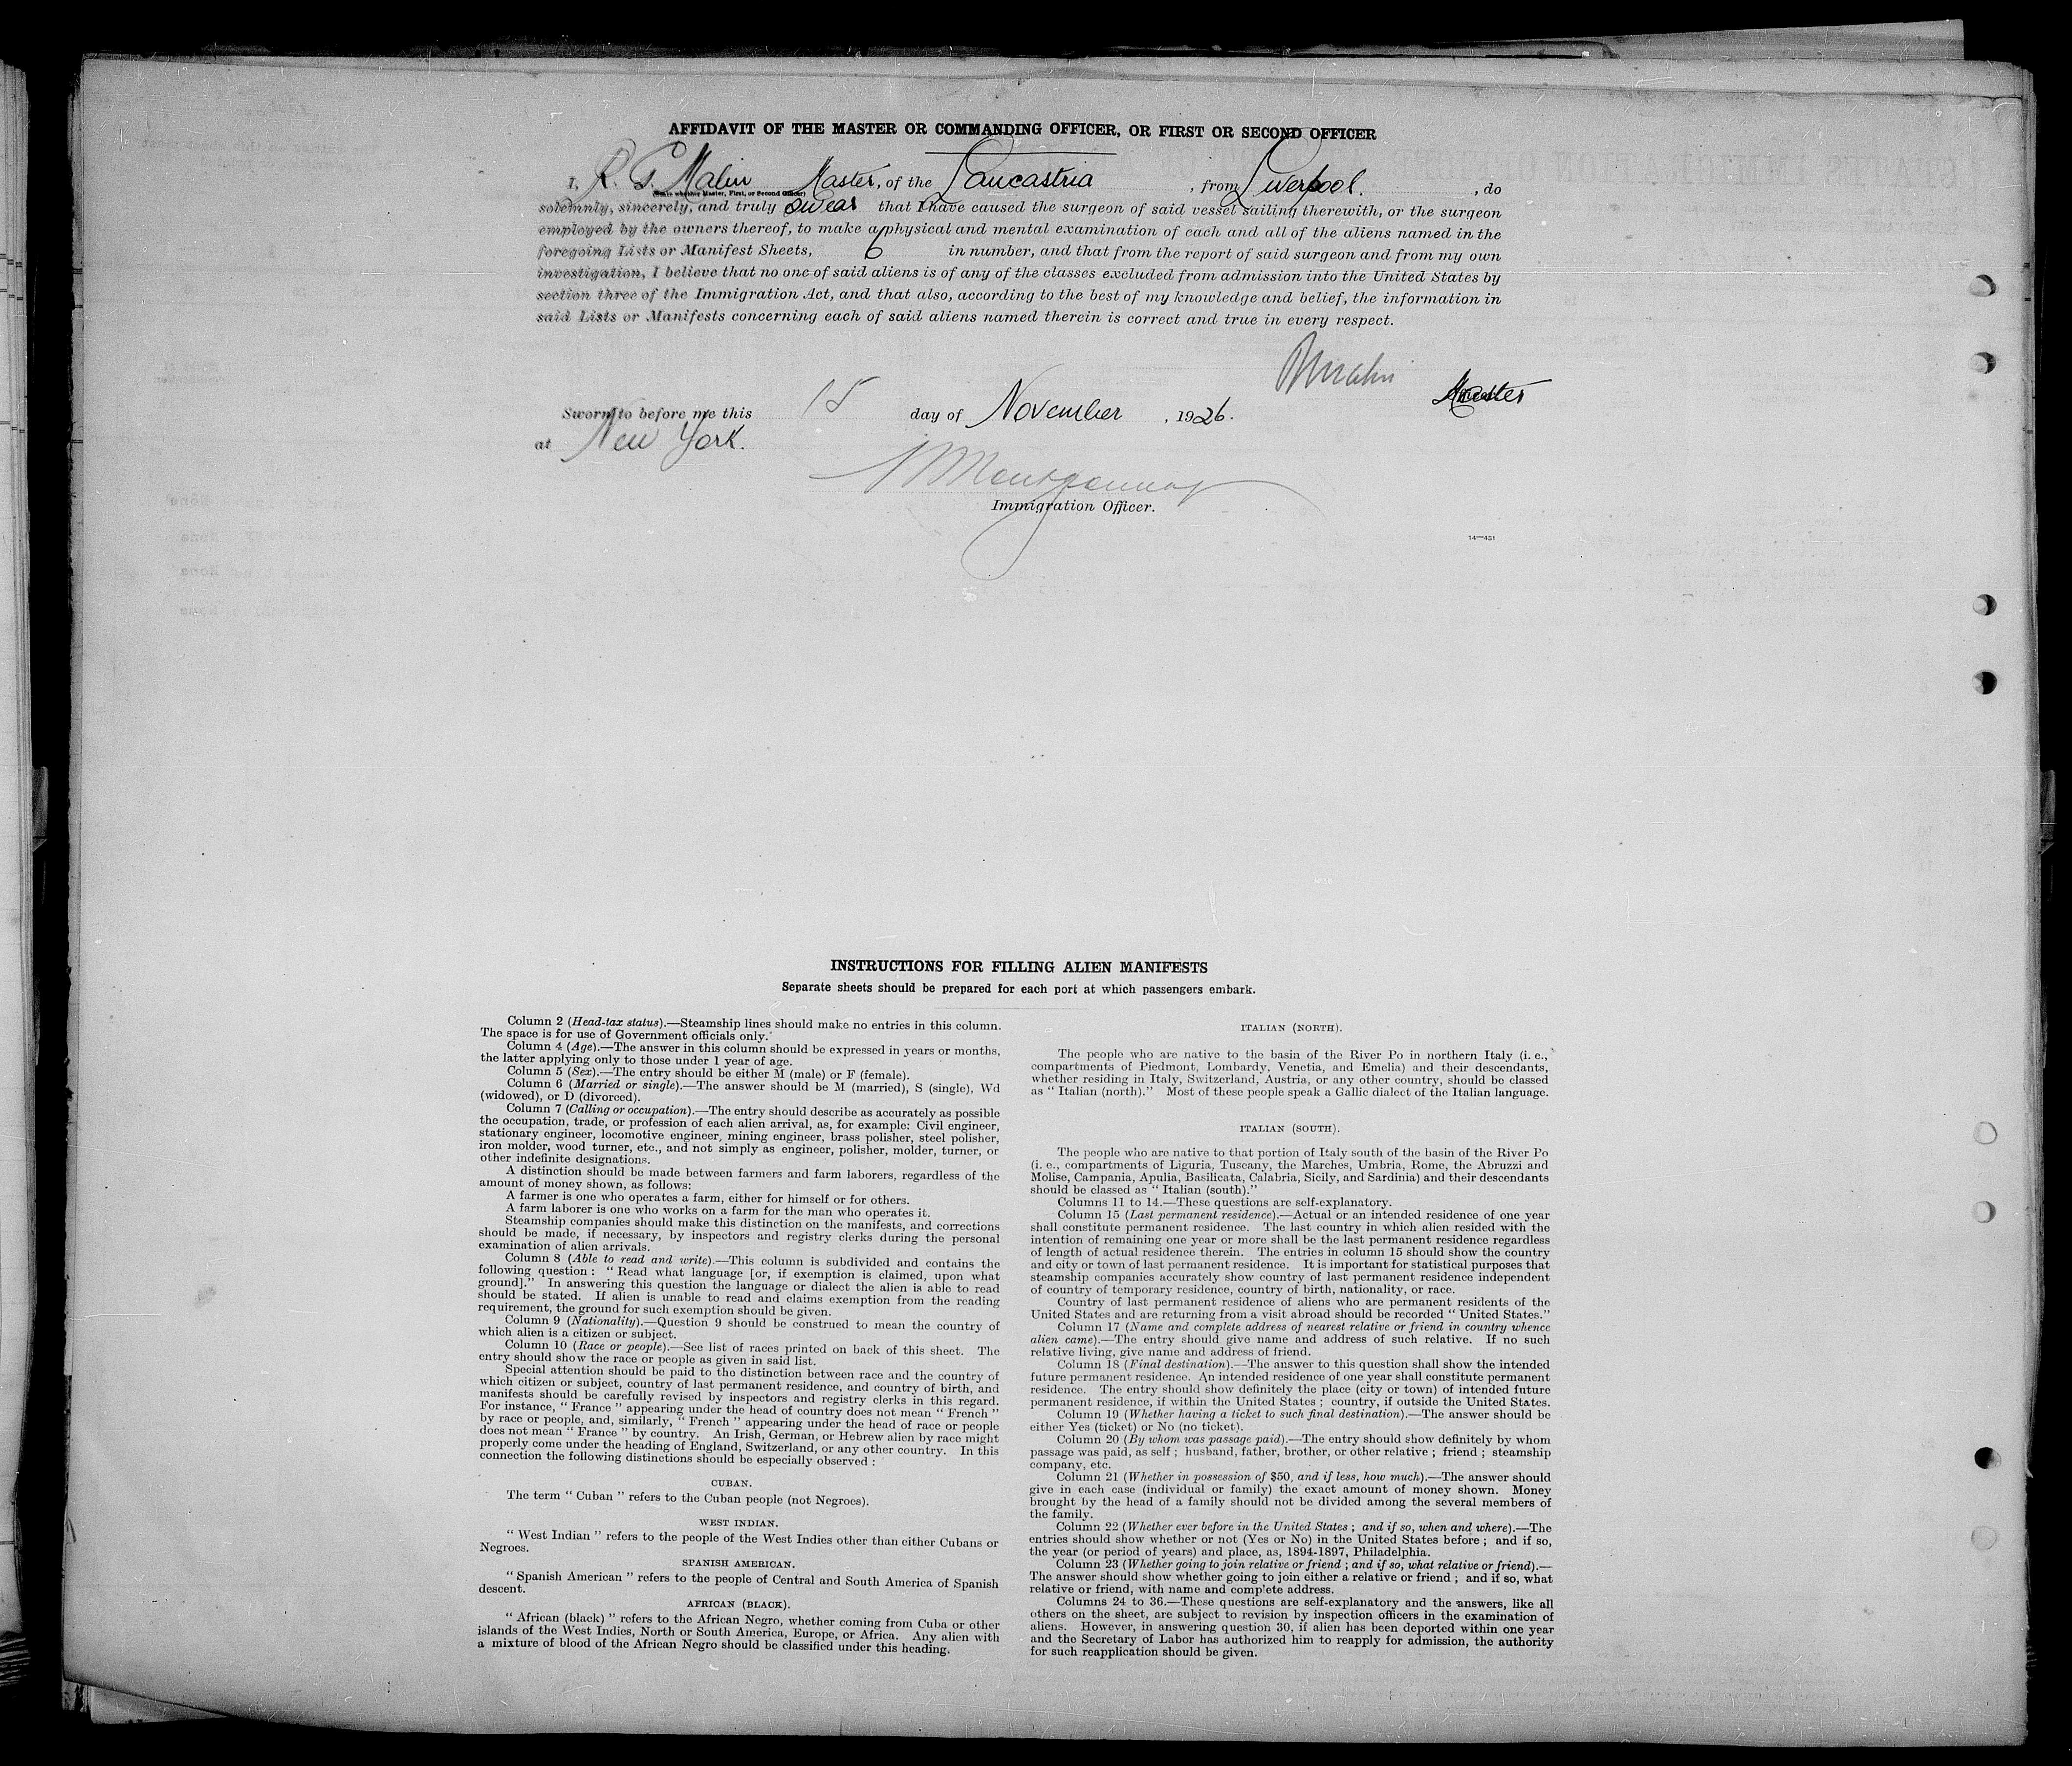 AFFIDAVIT OF THE MASTER OR COMMANDING OFFICER, OR FIRST OR SECOND OFFICER
I, R. G. Malin Master, of the Lancastria, from Liverpool., do
(State whether Master, First, or Second Officer)
solemnly, sincerely, and truly swear that I have caused the surgeon of said vessel sailing therewith, or the surgeon
employed by the owners thereof, to make a physical and mental examination of each and all of the aliens named in the
foregoing Lists or Manifest Sheets, 6 in number, and that from the report of said surgeon and from my own
investigation, I believe that no one of said aliens is of any of the classes excluded from admission into the United States by
section three of the Immigration Act, and that also, according to the best of my knowledge and belief, the information in
said Lists or Manifests concerning each of said aliens named therein is correct and true in every respect.
Malin Master
Sworn to before me this 15 day of November, 1926.
at New York.
Montgomery
Immigration Officer.
14—431
INSTRUCTIONS FOR FILLING ALIEN MANIFESTS
Separate sheets should be prepared for each port at which passengers embark.
Column 2 (Head-tax status).—Steamship lines should make no entries in this column.
The space is for use of Government officials only.
Column 4 (Age).—The answer in this column should be expressed in years or months,
the latter applying only to those under 1 year of age.
Column 5 (Sex).—The entry should be either M (male) or F (female).
Column 6 (Married or single).—The answer should be M (married), S (single), Wd
(widowed), or D (divorced).
Column 7 (Calling or occupation).—The entry should describe as accurately as possible
the occupation, trade, or profession of each alien arrival, as, for example: Civil engineer,
stationary engineer, locomotive engineer, mining engineer, brass polisher, steel polisher,
iron molder, wood turner, etc., and not simply as engineer, polisher, molder, turner, or
other indefinite designations.
A distinction should be made between farmers and farm laborers, regardless of the
amount of money shown, as follows:
A farmer is one who operates a farm, either for himself or for others.
A farm laborer is one who works on a farm for the man who operates it.
Steamship companies should make this distinction on the manifests, and corrections
should be made, if necessary, by inspectors and registry clerks during the personal
examination of alien arrivals.
Column 8 (Able to read and write).—This column is subdivided and contains the
following question: "Read what language [or, if exemption is claimed, upon what
ground]." In answering this question the language or dialect the alien is able to read
should be stated. If alien is unable to read and claims exemption from the reading
requirement, the ground for such exemption should be given.
Column 9 (Nationality).—Question 9 should be construed to mean the country of
which alien is a citizen or subject.
Column 10 (Race or people).—See list of races printed on back of this sheet. The
entry should show the race or people as given in said list.
Special attention should be paid to the distinction between race and the country of
which citizen or subject, country of last permanent residence, and country of birth, and
manifests should be carefully revised by inspectors and registry clerks in this regard.
For instance, "France" appearing under the head of country does not mean "French"
by race or people, and, similarly, "French" appearing under the head of race or people
does not mean "France" by country. An Irish, German, or Hebrew alien by race might
properly come under the heading of England, Switzerland, or any other country. In this
connection the following distinctions should be especially observed:
CUBAN.
The term "Cuban" refers to the Cuban people (not Negroes).
WEST INDIAN.
"West Indian" refers to the people of the West Indies other than either Cubans or
Negroes.
SPANISH AMERICAN.
"Spanish American" refers to the people of Central and South America of Spanish
descent.
AFRICAN (BLACK).
"African (black)" refers to the African Negro, whether coming from Cuba or other
islands of the West Indies, North or South America, Europe, or Africa. Any alien with
a mixture of blood of the African Negro should be classified under this heading.
ITALIAN (NORTH).
The people who are native to the basin of the River Po in northern Italy (i. e.,
compartments of Piedmont, Lombardy, Venetia, and Emelia) and their descendants,
whether residing in Italy, Switzerland, Austria, or any other country, should be classed
as "Italian (north)." Most of these people speak a Gallic dialect of the Italian language.
ITALIAN (SOUTH).
The people who are native to that portion of Italy south of the basin of the River Po
(i. e., compartments of Liguria, Tuscany, the Marches, Umbria, Rome, the Abruzzi and
Molise, Campania, Apulia, Basilicata, Calabria, Sicily, and Sardinia) and their descendants
should be classed as "Italian (south)."
Columns 11 to 14.—These questions are self-explanatory.
Column 15 (Last permanent residence).—Actual or an intended residence of one year
shall constitute permanent residence. The last country in which alien resided with the
intention of remaining one year or more shall be the last permanent residence regardless
of length of actual residence therein. The entries in column 15 should show the country
and city or town of last permanent residence. It is important for statistical purposes that
steamship companies accurately show country of last permanent residence independent
of country of temporary residence, country of birth, nationality, or race.
Country of last permanent residence of aliens who are permanent residents of the
United States and are returning from a visit abroad should be recorded "United States."
Column 17 (Name and complete address of nearest relative or friend in country whence
alien came).—The entry should give name and address of such relative. If no such
relative living, give name and address of friend.
Column 18 (Final destination).—The answer to this question shall show the intended
future permanent residence. An intended residence of one year shall constitute permanent
residence. The entry should show definitely the place (city or town) of intended future
permanent residence, if within the United States; country, if outside the United States.
Column 19 (Whether having a ticket to such final destination).—The answer should be
either Yes (ticket) or No (no ticket).
Column 20 (By whom was passage paid).—The entry should show definitely by whom
passage was paid, as self; husband, father, brother, or other relative; friend; steamship
company, etc.
Column 21 (Whether in possession of $50, and if less, how much).—The answer should
give in each case (individual or family) the exact amount of money shown. Money
brought by the head of a family should not be divided among the several members of
the family.
Column 22 (Whether ever before in the United States; and if so, when and where).—The
entries should show whether or not (Yes or No) in the United States before; and if so,
the year (or period of years) and place, as, 1894-1897, Philadelphia.
Column 23 (Whether going to join relative or friend; and if so, what relative or friend).—
The answer should show whether going to join either a relative or friend; and if so, what
relative or friend, with name and complete address.
Columns 24 to 36.—These questions are self-explanatory and the answers, like all
others on the sheet, are subject to revision by inspection officers in the examination of
aliens. However, in answering question 30, if alien has been deported within one year
and the Secretary of Labor has authorized him to reapply for admission, the authority
for such reapplication should be given.